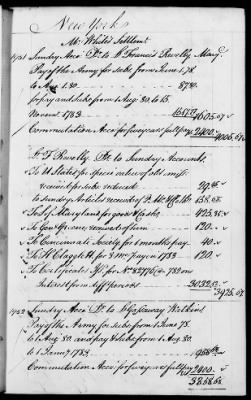 New York
Mr White's Settlemt
1751 Sundry Accots Dr to Lt Francis Revelly Maryd
Pay of the Army for Subs from June 1.78
to Aug 1.80 87.80
for pay and Subs from 1 Aug. 80 to 15.
Novemr 1783 1605.67
Commutation Accot for five years full pay 2400 4005.67
Lt F. Revelly Dr to Sundry Accounts.
To U States for specie value of old emiss:
received for Subs reduced 29.45
to Sundry Articles received of
To St. of Maryland for goods & Cash 425.85
to Govr Greene received of him 120..
To Cincinnati Society for 1 months pay 40..
To H. Clagett for 3 Mo. pay in 1783 120..
To Certificates for No 82776
Interest from diff. periods 3032.12
3975.67
1752 Sundry Accots Dr to Lt Gassaway Watkins
Pay of the Army for Subs from 1 June 78.
to 1 Aug 80 and pay & Subs from 1 Aug. 80
to 1 Janry 1783
Commutation Accot for five years full pay 2400
3868.68